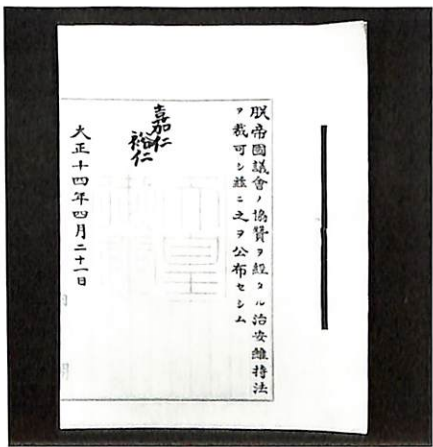 朕帝國議會ノ協賛ヲ經タル治安維持法
ヲ裁可シ玆ニ之ヲ公布セシム
嘉仁
裕仁
大正十四年四月二十一日